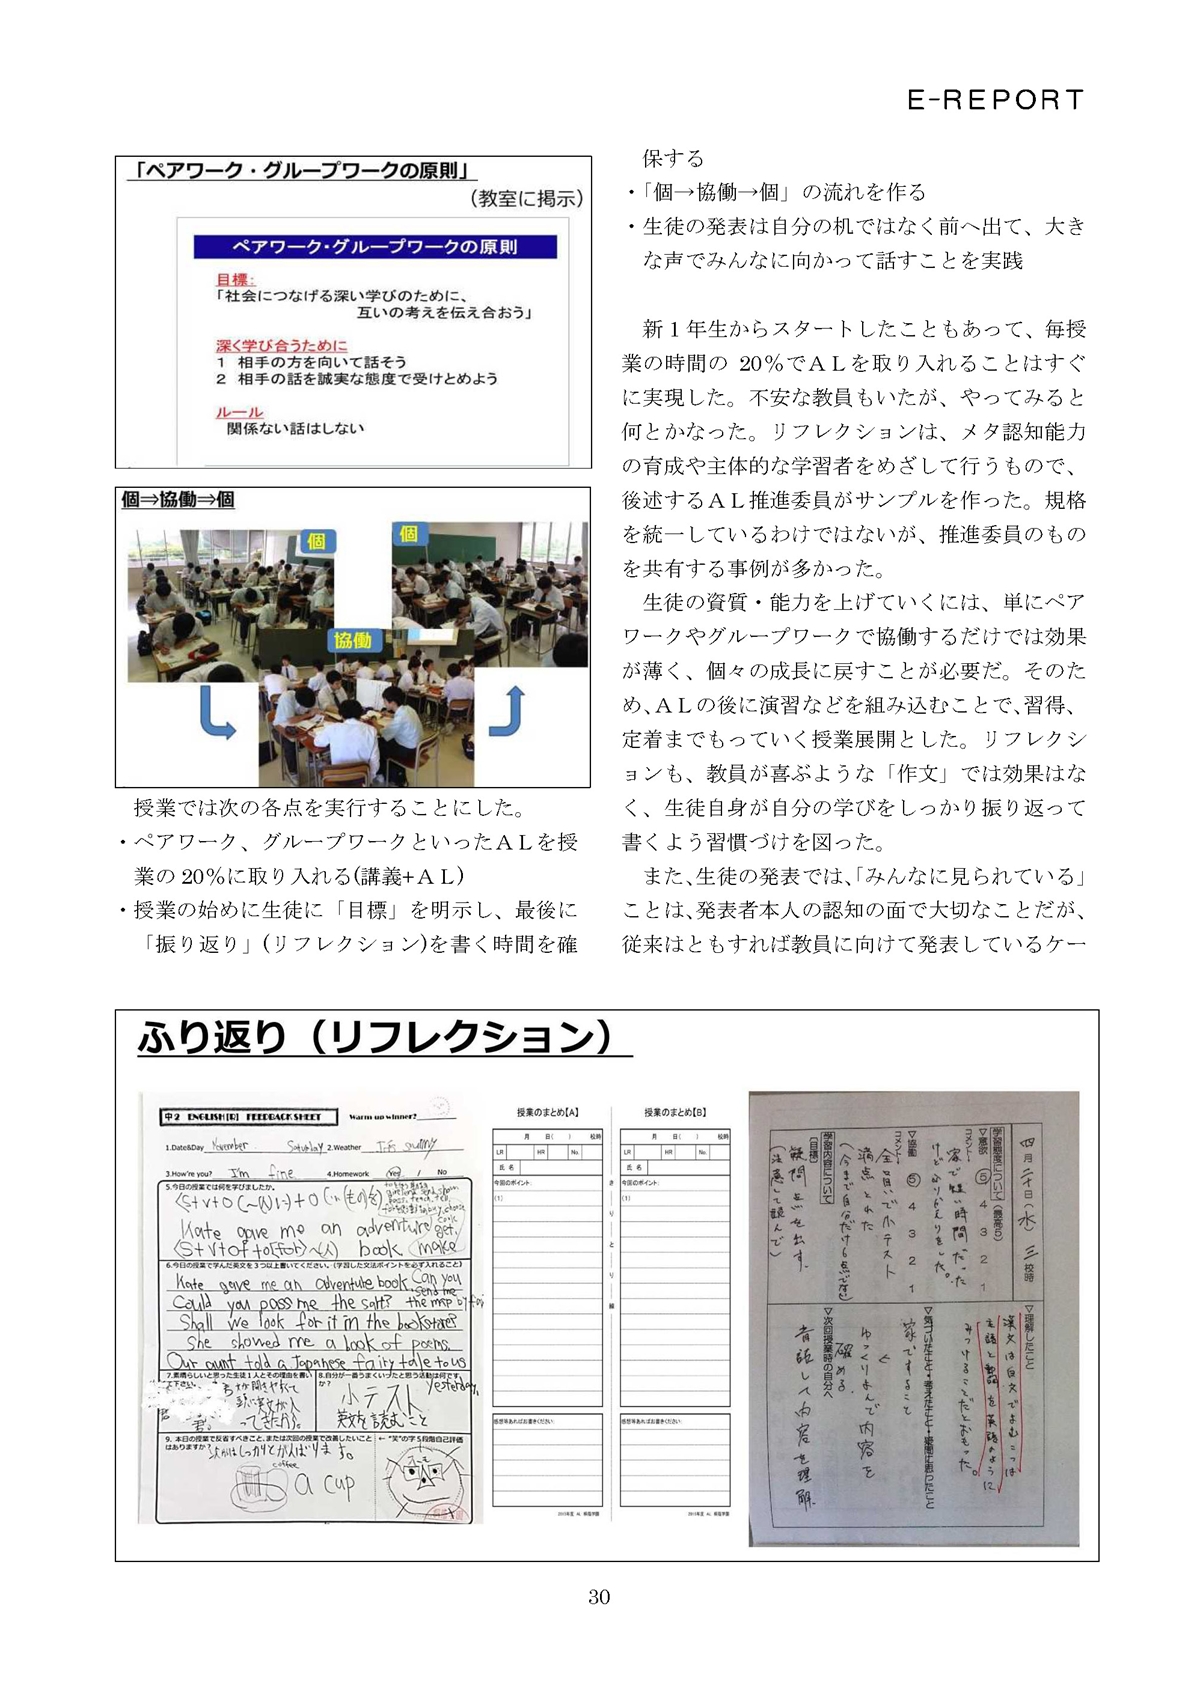 E-REPORT
「ペアワーク・グループワークの原則」
（教室に掲示）
ペアワーク・グループワークの原則
目標:
「社会につなげる深い学びのために、
互いの考えを伝え合おう」
深く学び合うために
1 相手の方を向いて話そう
2 相手の話を誠実な態度で受けとめよう
ルール
関係ない話はしない
個⇒協働⇒個
個
個
協働
授業では次の各点を実行することにした。
・ペアワーク、グループワークといったＡＬを授
業の 20％に取り入れる(講義+ＡＬ)
・授業の始めに生徒に「目標」を明示し、最後に
「振り返り」(リフレクション)を書く時間を確
保する
・「個→協働→個」の流れを作る
・生徒の発表は自分の机ではなく前へ出て、大き
な声でみんなに向かって話すことを実践
新１年生からスタートしたこともあって、毎授
業の時間の 20％でＡＬを取り入れることはすぐ
に実現した。不安な教員もいたが、やってみると
何とかなった。リフレクションは、メタ認知能力
の育成や主体的な学習者をめざして行うもので、
後述するＡＬ推進委員がサンプルを作った。規格
を統一しているわけではないが、推進委員のもの
を共有する事例が多かった。
生徒の資質・能力を上げていくには、単にペア
ワークやグループワークで協働するだけでは効果
が薄く、個々の成長に戻すことが必要だ。そのた
め、ＡＬの後に演習などを組み込むことで、習得、
定着までもっていく授業展開とした。リフレクシ
ョンも、教員が喜ぶような「作文」では効果はな
く、生徒自身が自分の学びをしっかり振り返って
書くよう習慣づけを図った。
また、生徒の発表では、「みんなに見られている」
ことは、発表者本人の認知の面で大切なことだが、
従来はともすれば教員に向けて発表しているケー
ふり返り（リフレクション）
中2 ENGLISH[R] FEEDBACK SHEET Warm up winner?
1.Date&Day November Saturday 2.Weather It's sunny
3.How're you? I'm fine 4.Homework Yes / No
5.今日の授業では何を学びましたか。
Kate gave me an adventure
book make
6.今日の授業で学んだ英文を３つ以上書いてください。(学習した文法ポイントを必ず入れること)
Kate gave me an adventure book. Can you
send me
Could you pass me the salt? the map by
Shall we look for it in the bookstore?
She showed me a book of poems.
Our aunt told a Japanese fairy tale to us
yesterday.
7.素晴らしいと思った生徒１人とその理由を書い
て下さい。
8.自分が一番うまくいったと思う活動は何です
か?
小テスト
英文を読むこと
9. 本日の授業で反省すべきこと、または次回の授業で改善したいこと
はありますか?
← "笑"の字５段階自己評価
coffee
a cup
授業のまとめ【A】
月 日( ) 校時
LR HR No.
氏 名
今回のポイント:
(1)
感想等あればお書きください
2015年度 AL 桐蔭学園
きりとり線
授業のまとめ【B】
月 日( ) 校時
LR HR No.
氏 名
今回のポイント:
(1)
感想等あればお書きください
2015年度 AL 桐蔭学園
四月二十日(水) 三校時
学習態度について (最高5)
▽意欲 ⑤ 4 3 2 1
コメント
▽協働 ⑤ 4 3 2 1
コメント
全員で小テスト
満点とれた
学習内容について
【目標】
疑問点を出す。
(注意して読んで)
▽理解したこと
漢文は白文でよむこつは
主語と動詞を英語のように
みつけることだとおもった。
▽気づいたこと・考えたこと・疑問に思ったこと
▽次回授業時の自分へ
音読して内容を理解
30